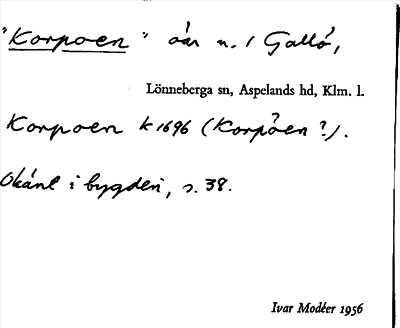 "Korpoen" oän u. / Gallö,
Lönneberga sn, Aspelands hd, Klm. l.
Korpoen k 1696 (Korpöen?).
Okänt i bygden, s. 38.
Ivar Modéer 1956